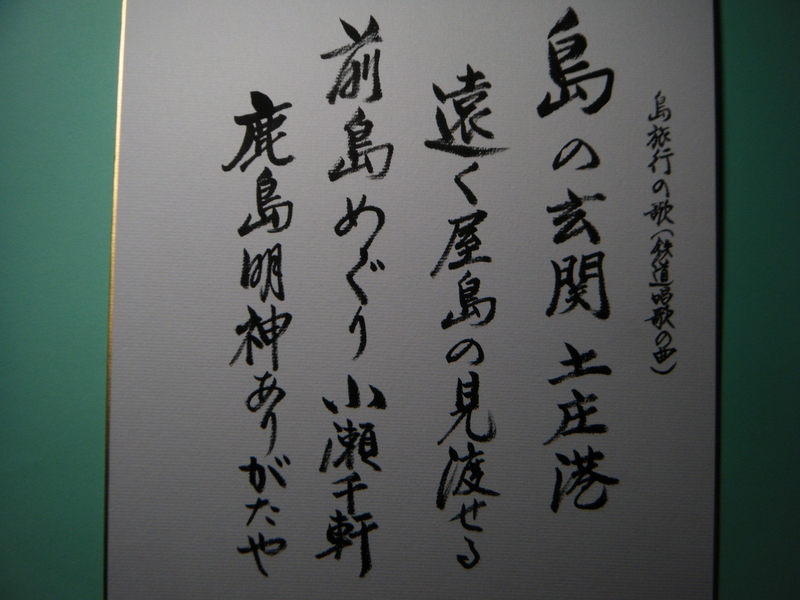 島旅行の歌(鉄道唱歌の曲)
島の玄関土庄港
遠く屋島の見渡せる
前島めぐり小瀬千軒
鹿島明神ありがたや